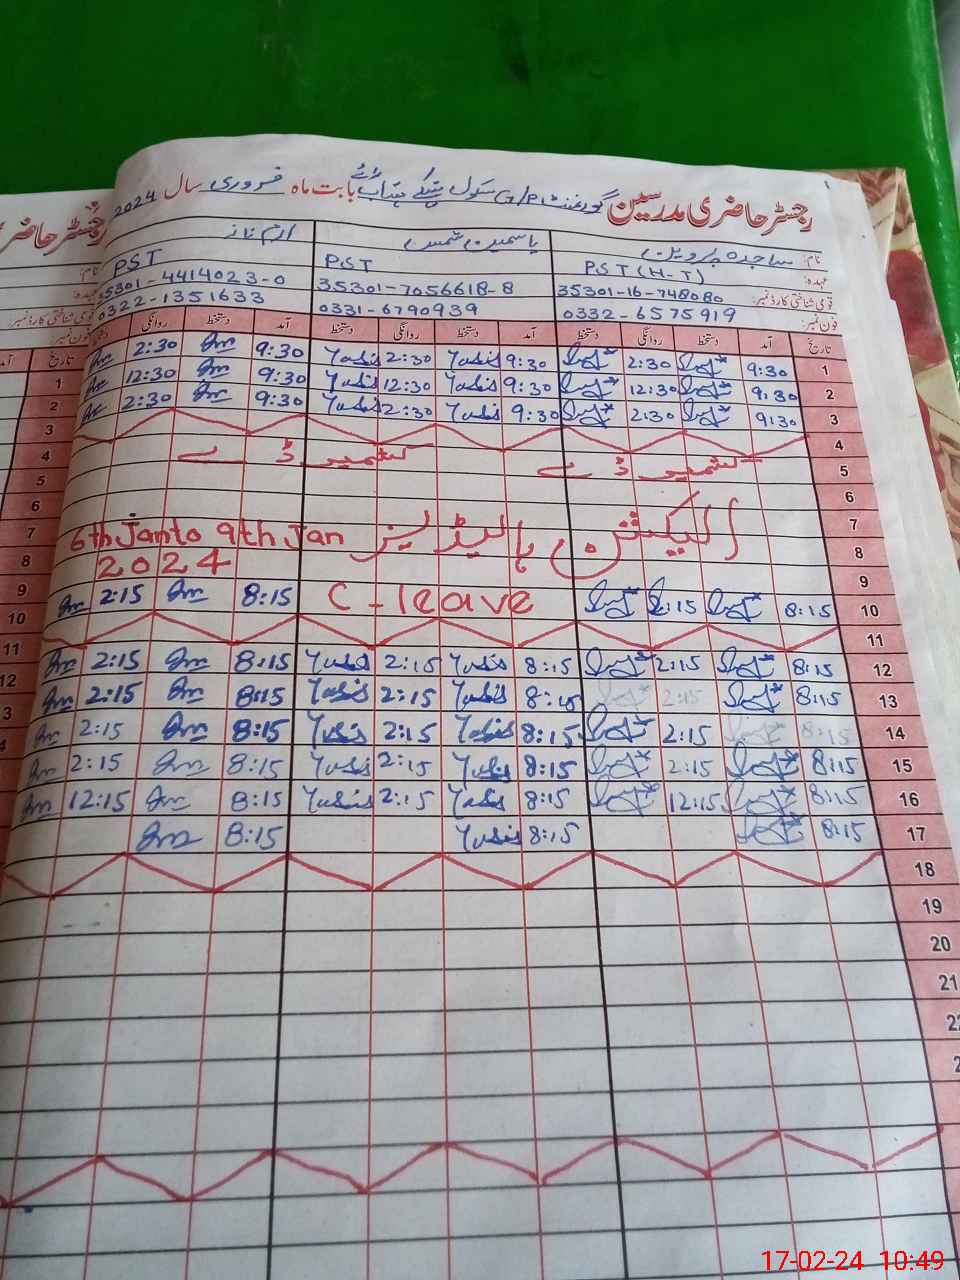 رجسٹر حاضری مدرسین گورنمنٹ G/P سکول بابت ماہ فروری سال 2024
نام: ساجدہ پروین یاسمین شمیم ارم ناز
عہدہ: PST (H-T) PST PST
قومی شناختی کارڈ نمبر: 35301-16-748080 35301-7056618-8 35301-4414023-0
فون نمبر: 0332-6575919 0331-6790939 0322-1351633
تاریخ آمد دستخط روانگی دستخط آمد دستخط روانگی دستخط آمد دستخط روانگی
1 9:30 2:30 9:30 Yasis 2:30 Yasis 9:30 2:30
2 9:30 12:30 9:30 Yasis 12:30 Yasis 9:30 12:30
3 9:30 2:30 9:30 Yasis 2:30 Yasis 9:30 2:30
4
5 کشمیر ڈے کشمیر ڈے
6
7 الیکشن ہالیڈیز 6th Jan to 9th Jan
8 2024
9
10 8:15 2:15 C-leave 8:15 2:15
11
12 8:15 2:15 8:15 Yasis 2:15 Yasis 8:15 2:15
13 8:15 2:15 8:15 Yasis 2:15 Yasis 8:15 2:15
14 8:15 2:15 8:15 Yasis 2:15 Yasis 8:15 2:15
15 8:15 2:15 8:15 Yasis 2:15 Yasis 8:15 2:15
16 8:15 12:15 8:15 Yasis 2:15 Yasis 8:15 12:15
17 8:15 8:15 Yasis 8:15
18
19
20
21
22
2
رجسٹر حاضری
تاریخ آمد
1
2
3
4
5
6
7
8
9
10
11
12
3
4
17-02-24 10:49